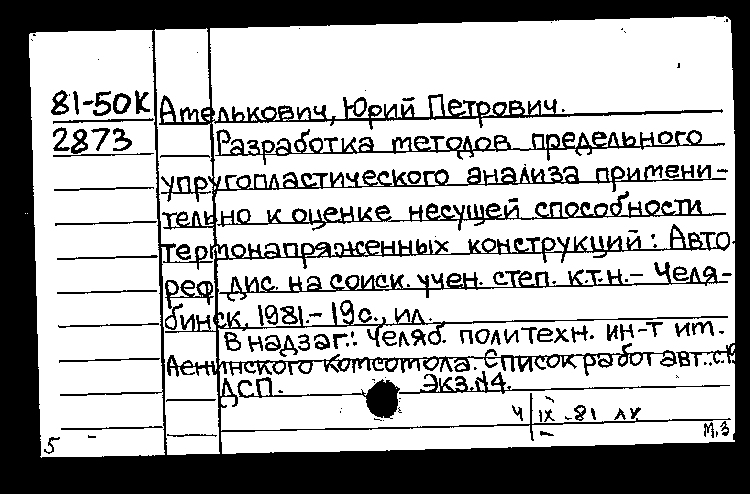 81-50К Ателькович, Юрий Петрович.
2873 Разработка методов предельного
упругопластического анализа примени-
тельно к оценке несущей способности
термонапряженных конструкций: Авто-
реф. дис. на соиск. учен. степ. к.т.н. - Челя-
бинск, 1981. - 19с., ил.
В надзаг.: Челяб. политехн. ин-т им.
Ленинского комсомола. Список работ авт.: с. 19
ДСП. Экз. №4.
4 IX -81 ЛК
5 М,3